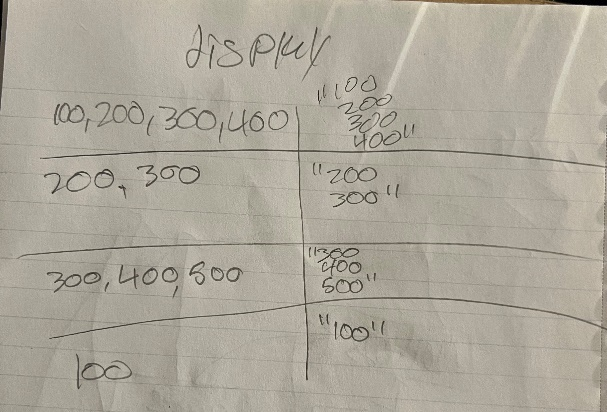 display
100,200,300,400
"100
200
300
400"
200, 300
"200
300"
300,400,500
"300
400
500"
100
"100"